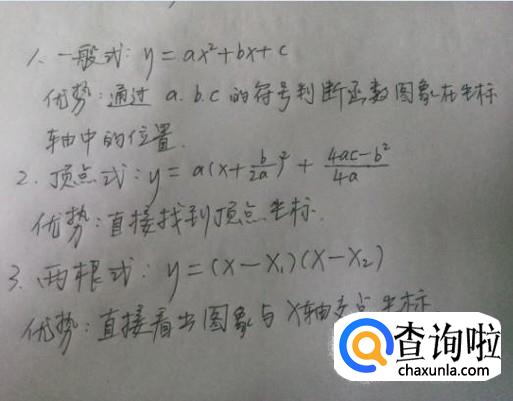 1. 一般式: y = ax²+bx+c
优势: 通过 a.b.c 的符号判断函数图象在坐标
轴中的位置.
2. 顶点式: y = a(x+b/2a)² + 4ac-b²/4a
优势: 直接找到顶点坐标.
3. 两根式: y=(x-x₁)(x-x₂)
优势: 直接看出图象与x轴交点坐标
查询啦
chaxunla.com